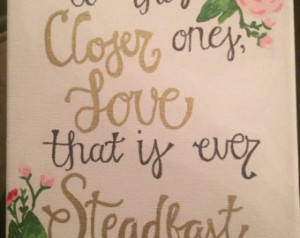 Closer ones,
Love
that is ever
Steadfast